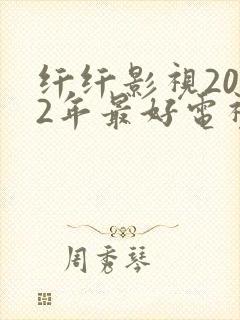 纤纤影視20
2年最好電視
周秀琴